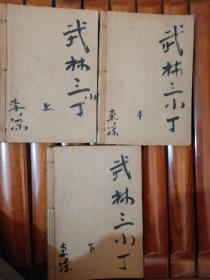 武林三小丁
上
李凉
武林三小丁
中
李凉
武林三小丁
下
李凉